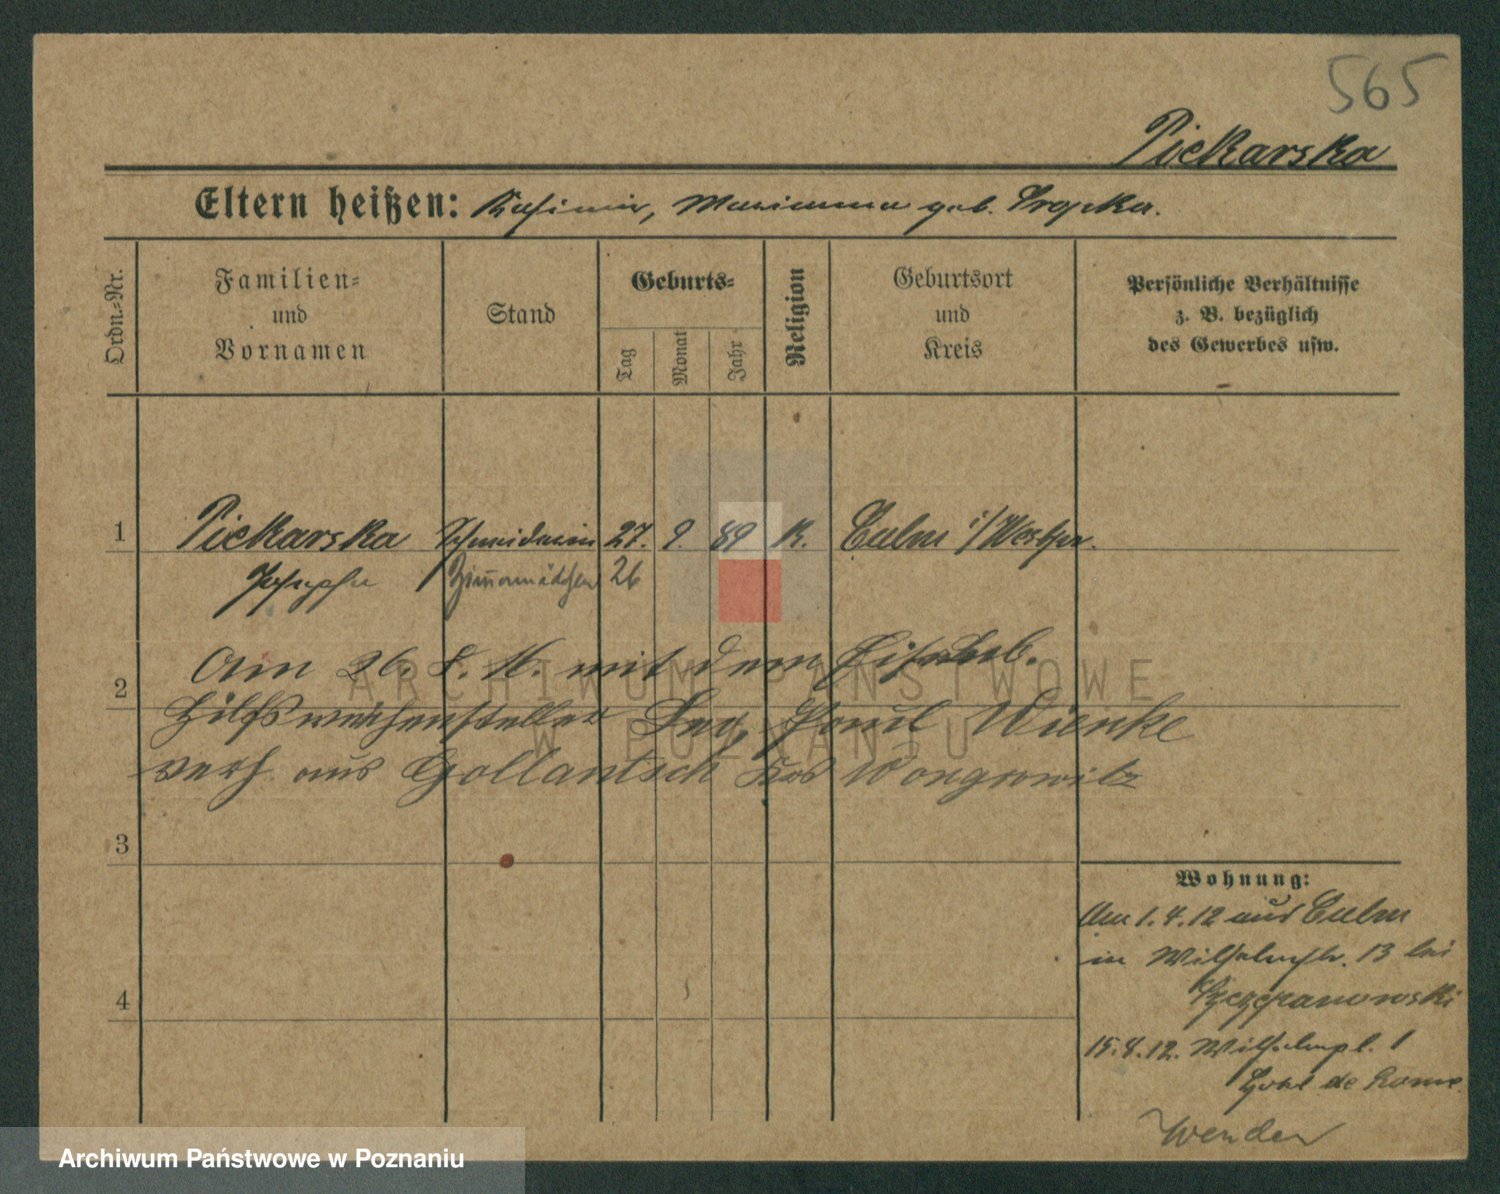 565
Piekarska
Eltern heißen: Kasimir, Marianna geb.
Ordn.-Nr.
Familien-
und
Vornamen
Stand
Geburts-
Tag
Monat
Jahr
Religion
Geburtsort
und
Kreis
Persönliche Verhältnisse
z. B. bezüglich
des Gewerbes usw.
1
Piekarska Schneiderin 27. 9. 89 K. Culm i/Westpr.
Josepha Zimmermädchen 26
Am 26. 8. 16. mit dem
2
Hilfsweichensteller Paul Wienke
verh aus Gollantsch Krs Wongrowitz
3
4
Wohnung:
Am 1.4.12 aus Culm
in Wilhelmstr. 13 bei
Szczepanowski
15.4.12. Wilhelmpl. 1
Hotel de Rome
Wenden
ARCHIWUM PAŃSTWOWE
W POZNANIU
Archiwum Państwowe w Poznaniu